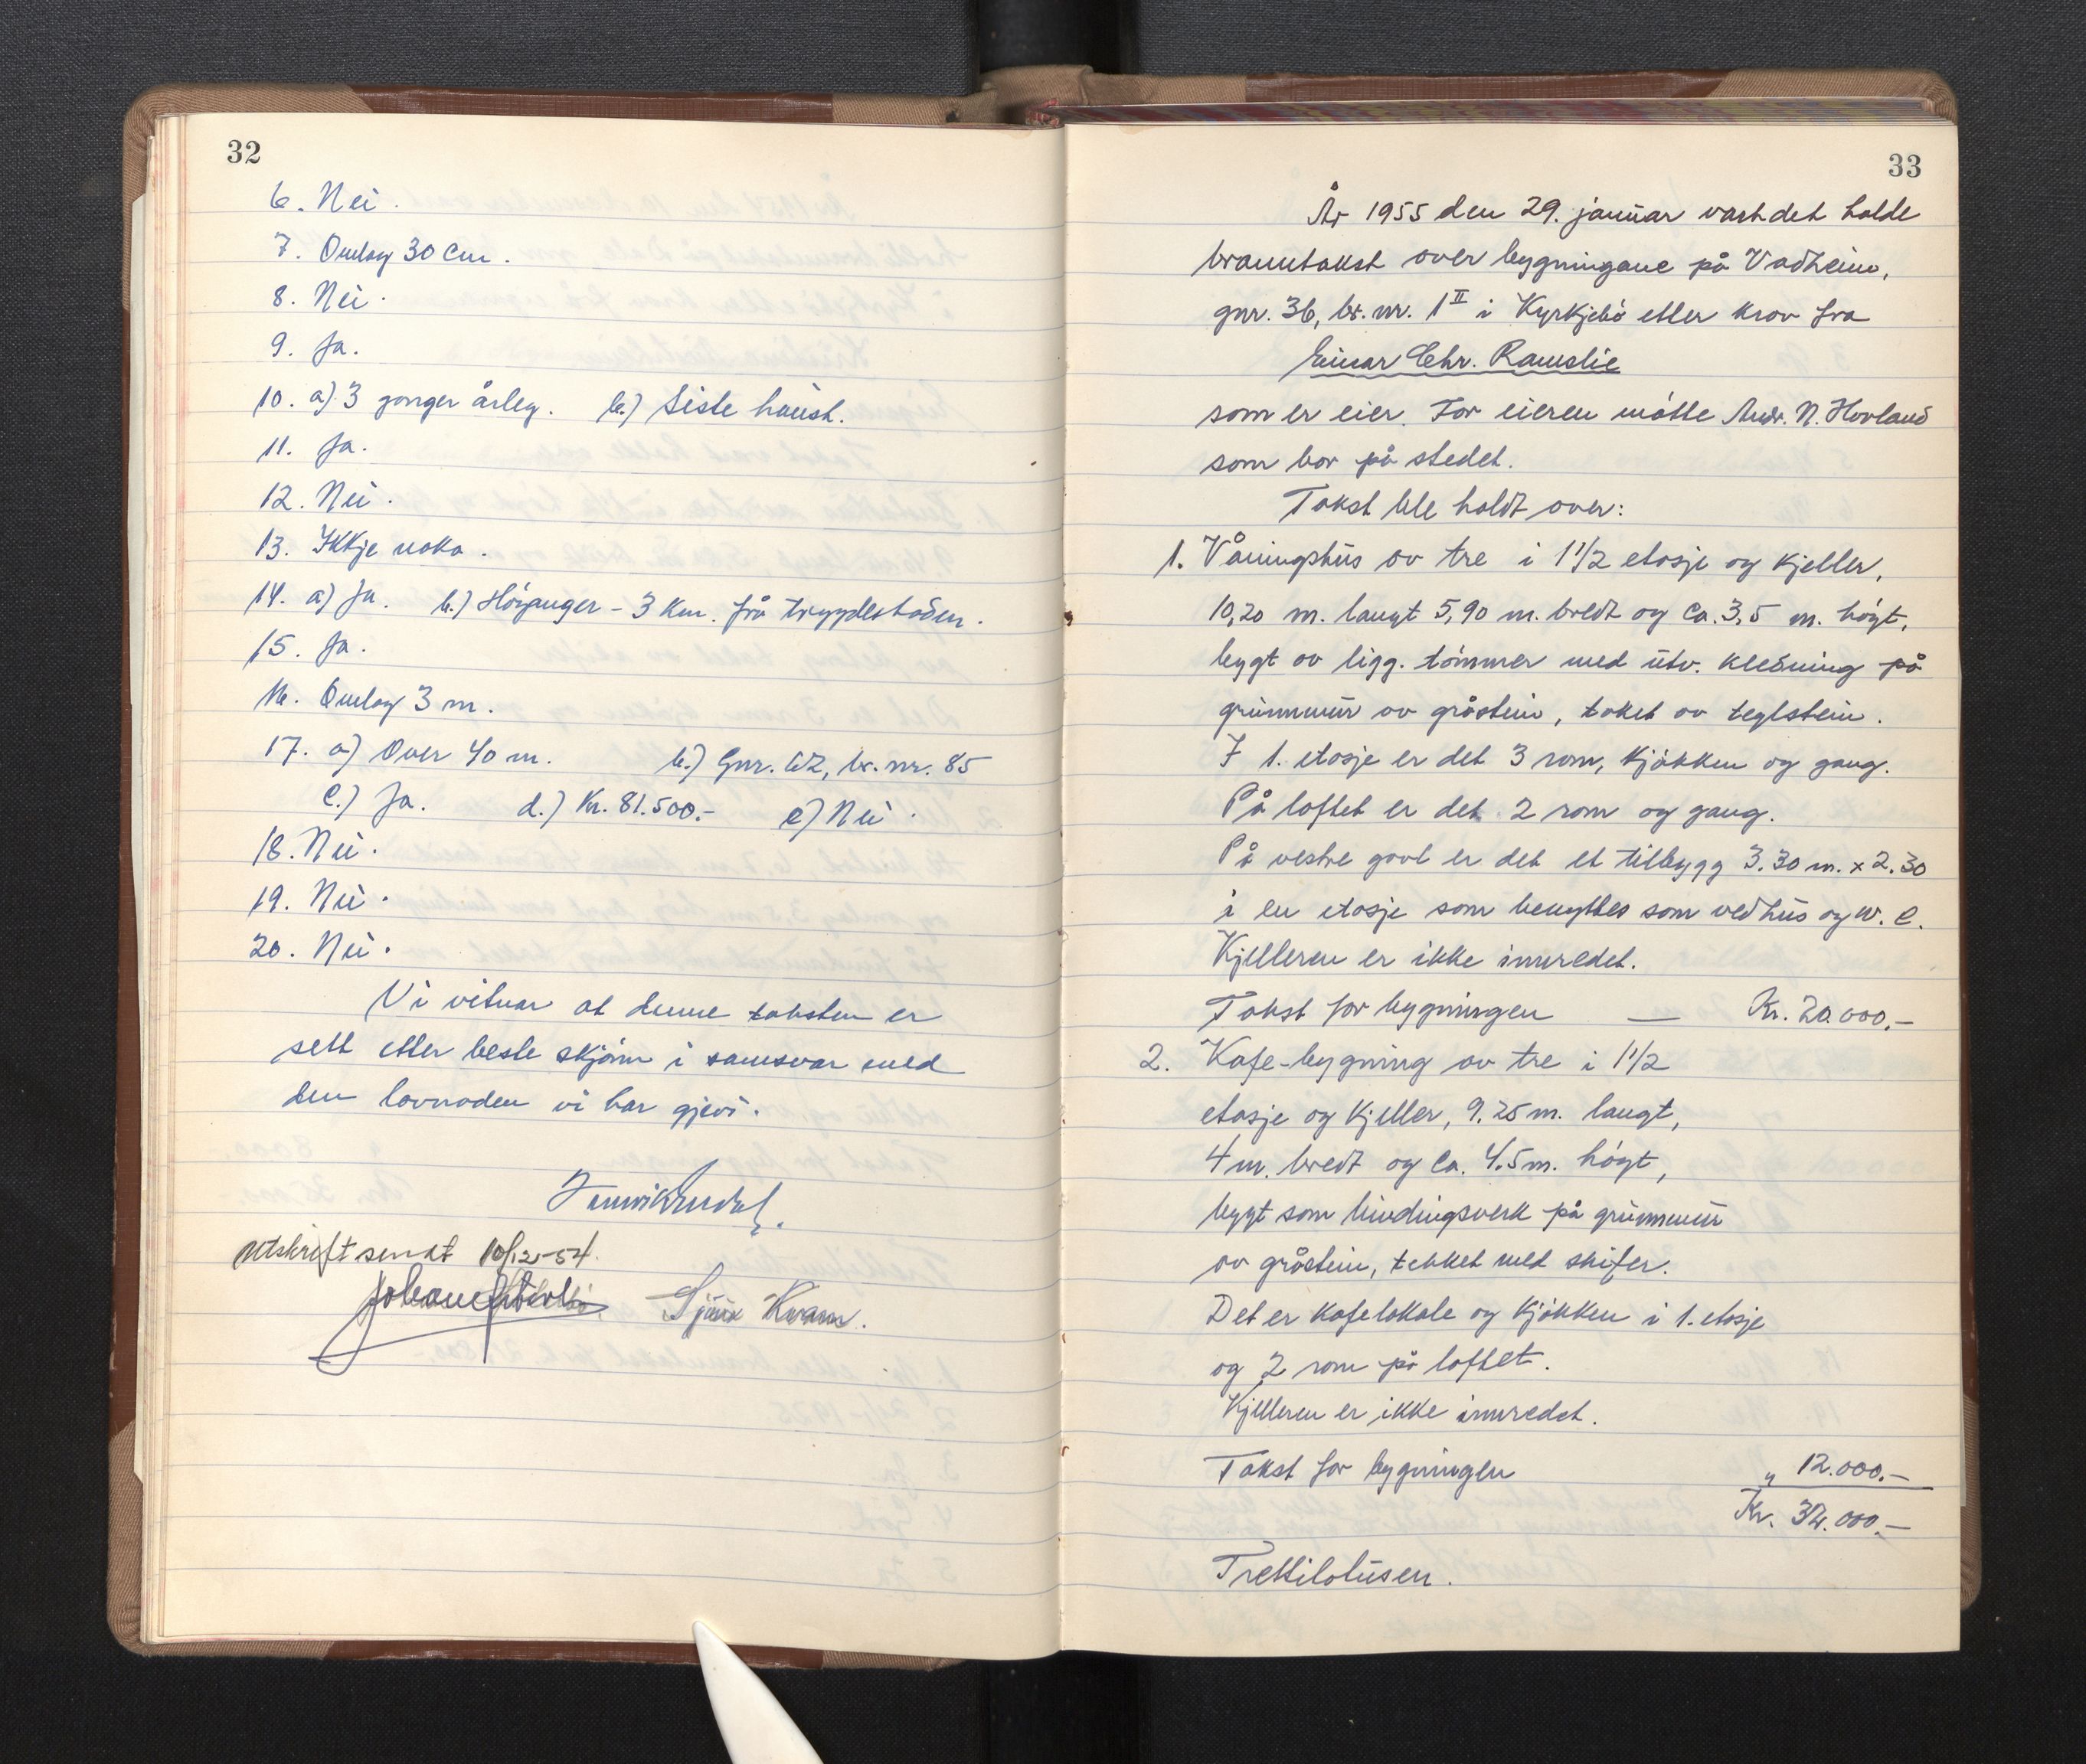 32
6. Nei.
7. Omlag 30 cm.
8. Nei.
9. Ja.
10. a) 3 gonger årleg. b.) Siste haust.
11. Ja.
12. Nei.
13. Ikkje noko.
14. a) Ja. b.) Høyanger - 3 km. frå trygdestaden.
15. Ja.
16. Omlag 3 m.
17. a) Over 40 m. b.) Gnr. 62, br. nr. 85
c.) Ja. d.) Kr. 81.500.- e) Nei.
18. Nei.
19. Nei.
20. Nei.
Vi vitnar at denne taksten er
sett etter beste skjønn i samsvar med
den lovnaden vi har gjevi.
Utskrift sendt 10/12-54.
33
År 1955 den 29. januar vart det halde
branntakst over bygningane på Vadheim,
gnr. 36, br. nr. 1 II i Kyrkjebø etter krav fra
Einar Chr. Ramslie
som er eier. For eieren møtte Andr. N. Hovland
som bor på stedet.
Takst ble holdt over:
1. Våningshus av tre i 1 1/2 etasje og kjeller,
10,20 m. langt 5,90 m. bredt og ca. 3,5 m. høgt,
bygt av ligg. tømmer med utv. kledning på
grunnmur av gråstein, taket av teglstein.
I 1. etasje er det 3 rom, kjøkken og gang.
På loftet er det 2 rom og gang.
På vestre gavl er det et tilbygg 3.30 m. x 2.30
i en etasje som benyttes som vedhus og w.c.
Kjelleren er ikke innredet.
Takst for bygningen — Kr. 20.000,-
2. Kafe-bygning av tre i 1 1/2
etasje og kjeller, 9.25 m. langt,
4 m. bredt og ca. 4.5 m. høgt,
bygt som bindingsverk på grunnmur
av gråstein, tekket med skifer.
Det er kafelokale og kjøkken i 1. etasje
og 2 rom på loftet.
Kjelleren er ikke innredet.
Takst for bygningen " 12.000.-
Kr. 32.000.-
Trettitotusen.